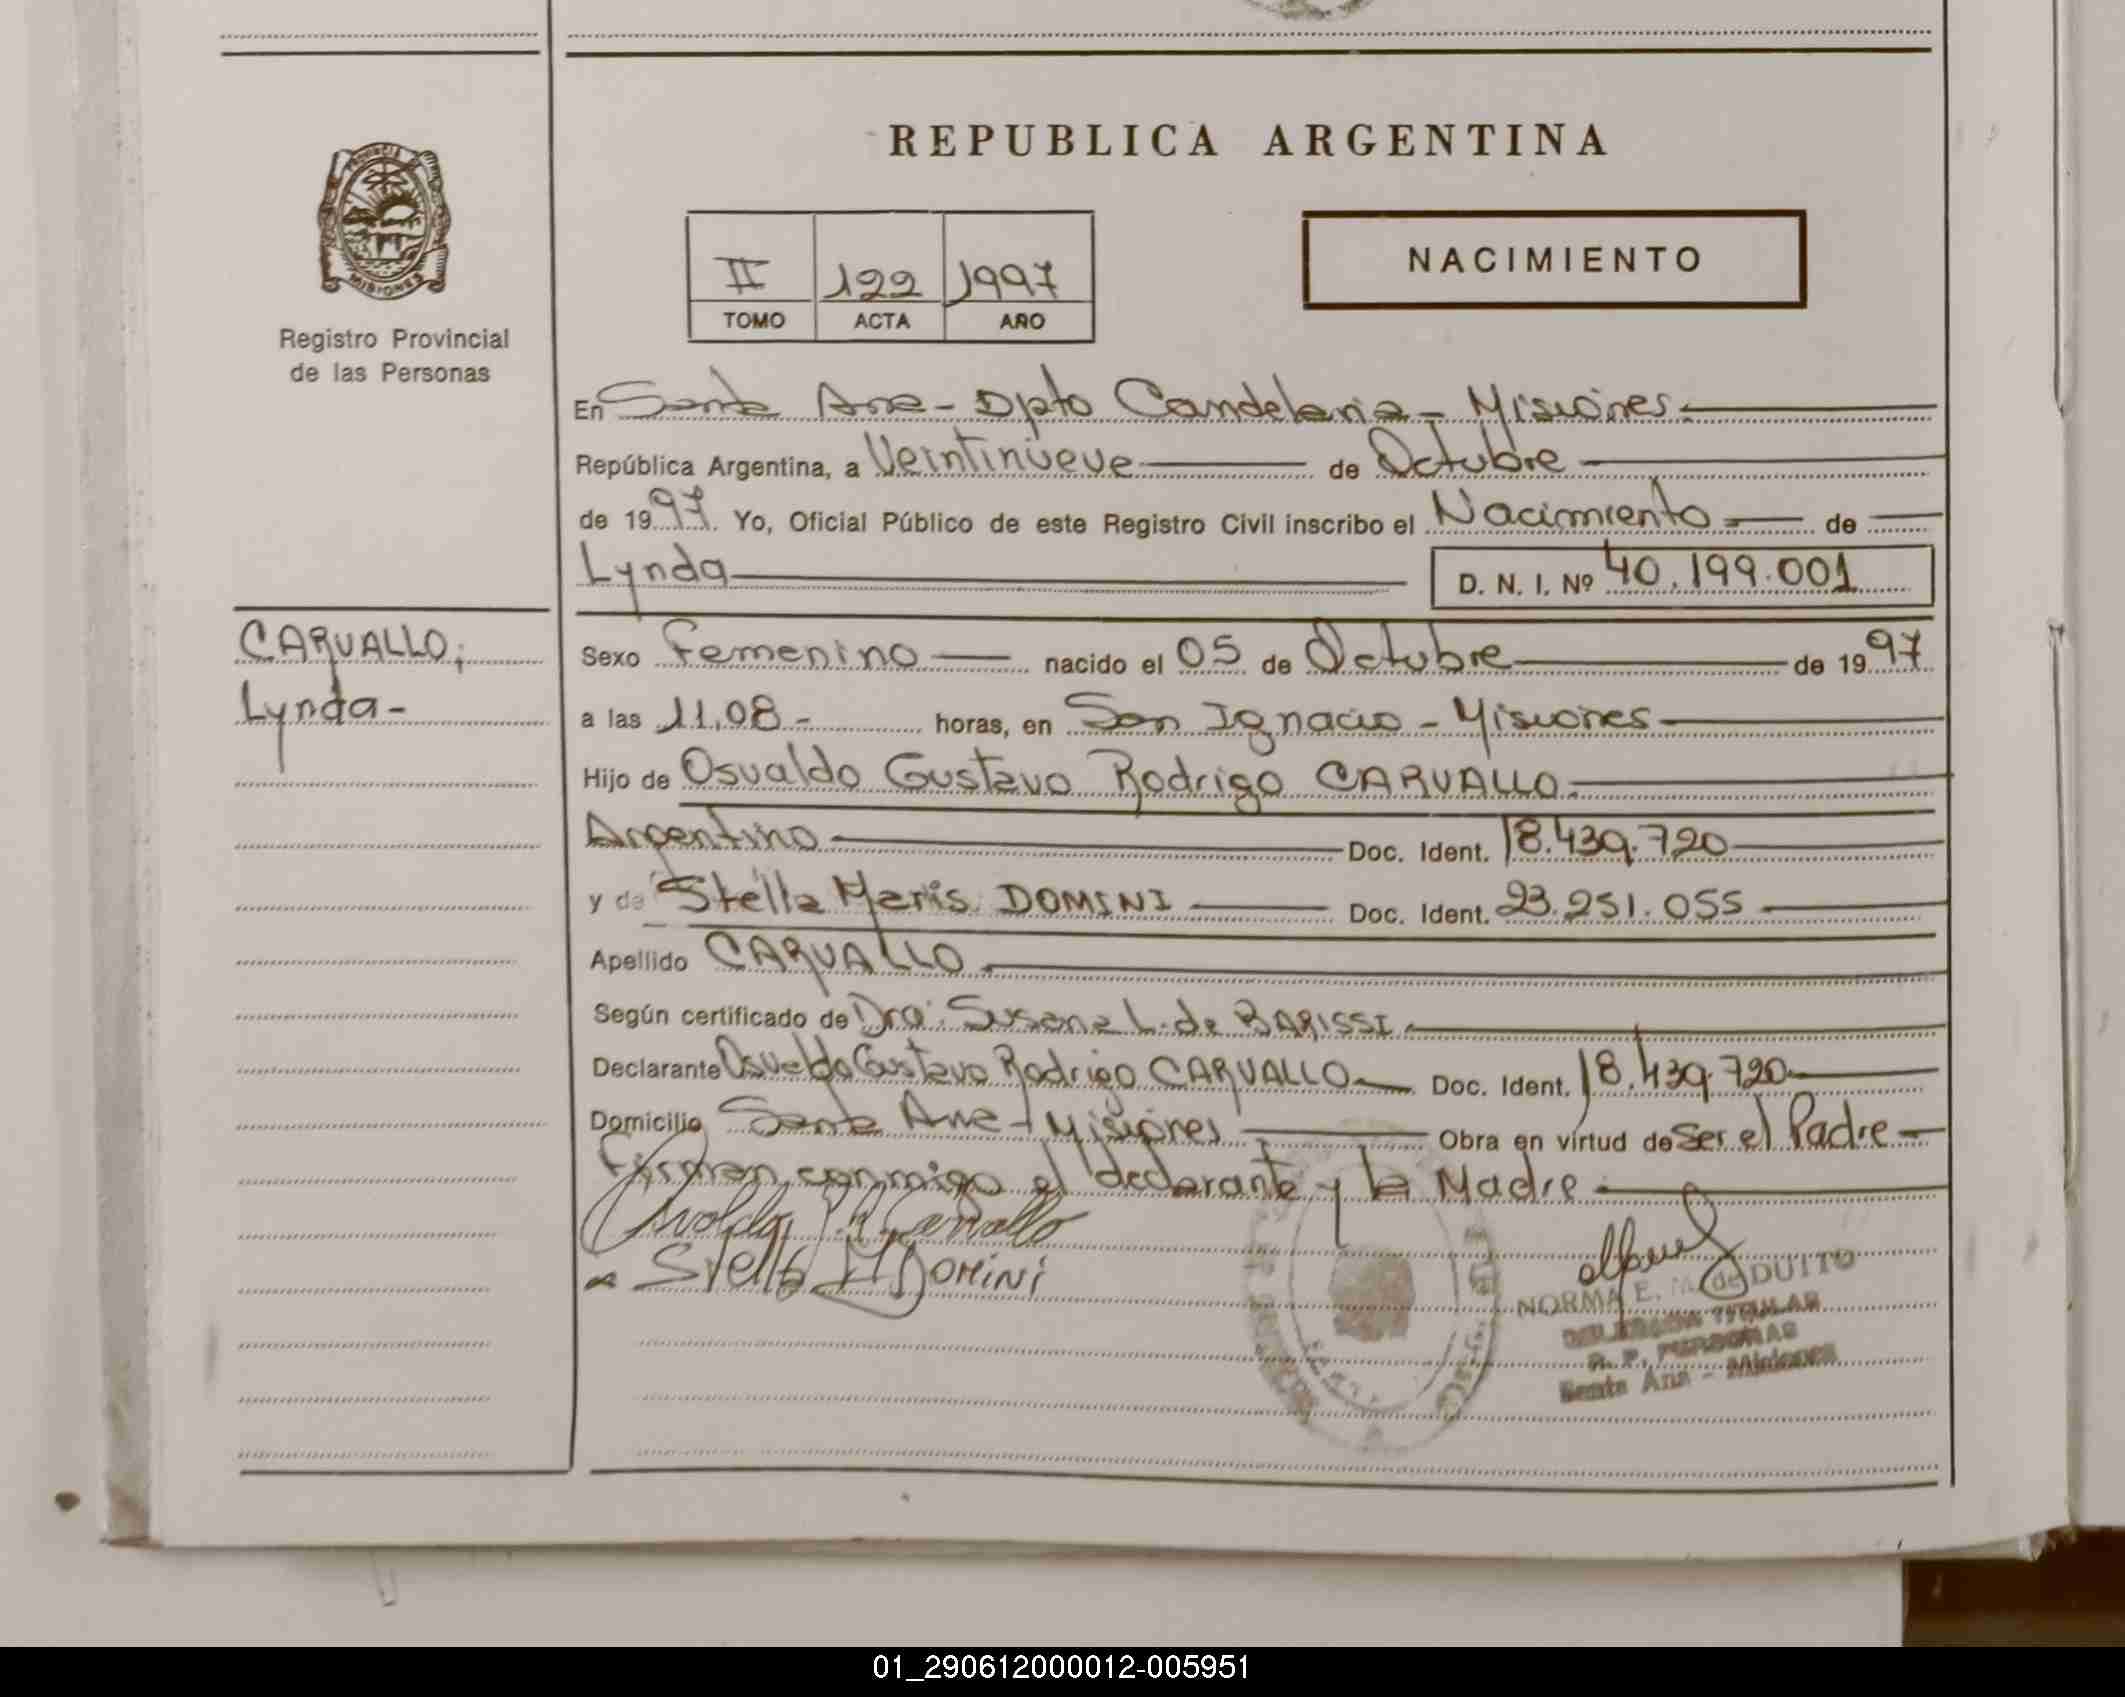 REPUBLICA ARGENTINA
PROVINCIA
MISIONES
Registro Provincial
de las Personas
II 122 1997
TOMO ACTA AÑO
NACIMIENTO
En Santa Ana - Dpto Candelaria - Misiones.
República Argentina, a Veintinueve de Octubre
de 1997. Yo, Oficial Público de este Registro Civil inscribo el Nacimiento de
Lynda D. N. I. Nº 40.199.001
CARVALLO;
Lynda-
Sexo Femenino nacido el 05 de Octubre de 1997
a las 11.08- horas, en San Ignacio - Misiones
Hijo de Osvaldo Gustavo Rodrigo CARVALLO
Argentino Doc. Ident. 18.439.720
y de Stella Maris DOMINI Doc. Ident. 23.251.055
Apellido CARVALLO
Según certificado de Dra. Susana L. de BARISSI.
Declarante Osvaldo Gustavo Rodrigo CARVALLO Doc. Ident. 18.439.720
Domicilio Santa Ana - Misiones Obra en virtud de Ser el Padre
Firman conmigo el declarante y la Madre
Osvaldo Carvallo
Stella M Domini
NORMA E. de DUITO
DELEGADA TITULAR
R. P. PERSONAS
Santa Ana - Misiones
01_290612000012-005951